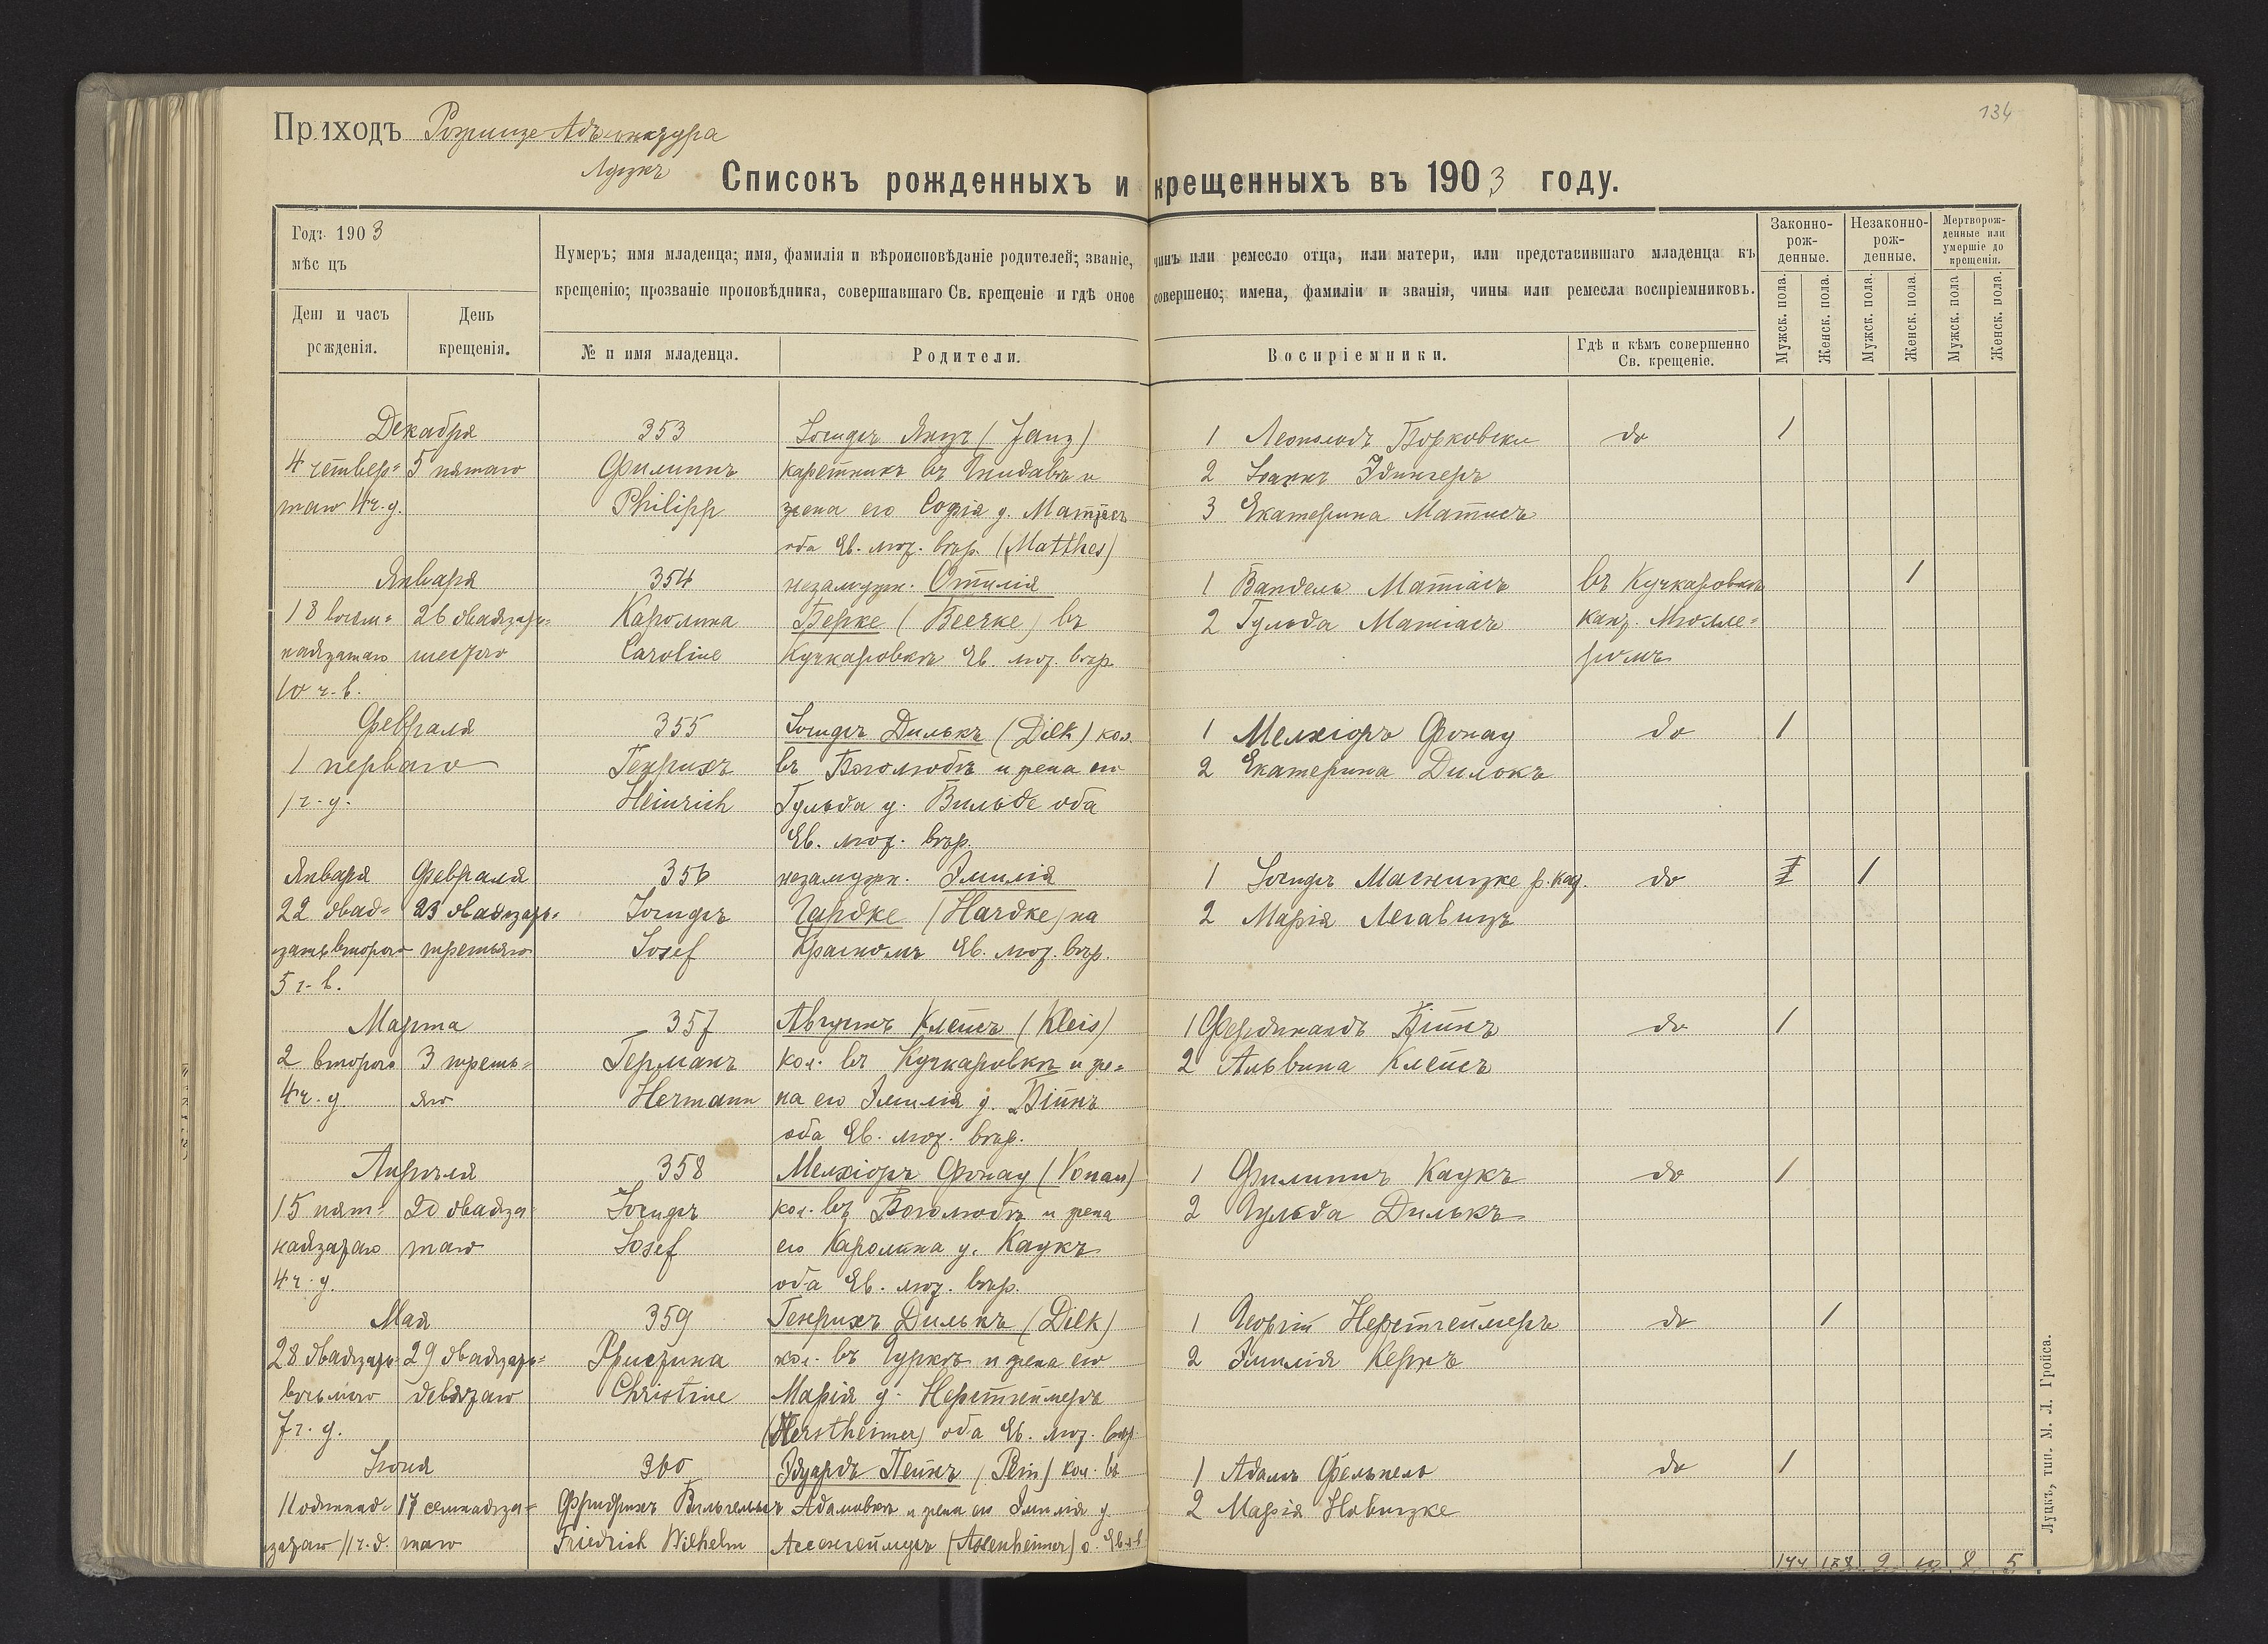 134
Приходъ Рожище-Адъюнктура
Луцкъ
Списокъ рожденныхъ и крещенныхъ въ 1903 году.
Годъ 1903
мѣсяцъ
День и часъ рожденія.
День крещенія.
Нумеръ; имя младенца; имя, фамилія и вѣроисповѣданіе родителей; званіе, чинъ или ремесло отца, или матери, или представившаго младенца къ
крещенію; прозваніе проповѣдника, совершавшаго Св. крещеніе и гдѣ оное совершено; имена, фамиліи и званія, чины или ремесла воспріемниковъ.
№ и имя младенца.
Родители.
Воспріемники.
Гдѣ и кѣмъ совершенно Св. крещеніе.
Законно-рож-денные.
Незаконно-рож-денные.
Мертворож-денные или умершіе до крещенія.
Мужск. пола.
Женск. пола.
Мужск. пола.
Женск. пола.
Мужск. пола
Женск. пола.
Декабря
4 четвер=
таго 4 ч. у.
5 пятаго
353
Филиппъ
Philipp
Іосифъ Янцъ (Janz)
каретникъ въ Гнидавѣ и
жена его Софія у. Маттесъ
оба Ев. лют. вѣр. (Matthes)
1 Леопольдъ Борковски
2 Іоаннъ Эдингеръ
3 Екатерина Матисъ
do
1
Января
18 восем=
надцатаго
10 ч. в.
26 двадцать=
шестого
354
Каролина
Caroline
незамужн. Отилія
Берке (Beerke) въ
Кучкаровкѣ Ев. лют. вѣр.
1 Вандель Матіасъ
2 Гульда Матіасъ
въ Кучкаровкѣ
кант. Мюлле=
ромъ
1
Февраля
1 перваго
1 ч. у.
355
Генрихъ
Heinrich
Іосифъ Дилькъ (Dilk) кол.
въ Боголюбѣ и жена его
Гульда у. Вильде оба
Ев. лют. вѣр.
1 Мелхіоръ Фонау
2 Екатерина Дилькъ
do
1
Января
22 двад=
цать второго
5 ч. в.
Февраля
23 двадцать=
третьяго
356
Іосифъ
Josef
незамужн. Эмилія
Гардке (Hardke) на
Красномъ Ев. лют. вѣр.
1 Іосифъ
2 Марія
do
1
Марта
2 второго
4 ч. у.
3 треть=
яго
357
Германъ
Hermann
Августъ Клейсъ (Kleis)
кол. въ Кучкаровкѣ и же=
на его Эмилія у. Бінкъ
оба Ев. лют. вѣр.
1 Фердинандъ Бінкъ
2 Альвина Клейсъ
do
1
Апрѣля
15 пят=
надцатаго
4 ч. у.
20 двадца=
таго
358
Іосифъ
Josef
Мелхіоръ Фонау (Vonau)
кол. въ Боголюбѣ и жена
его Каролина у. Каукъ
оба Ев. лют. вѣр.
1 Филиппъ Каукъ
2 Гульда Дилькъ
do
1
Мая
28 двадцать
восьмаго
7 ч. у.
29 двадцать=
девятаго
359
Христина
Christine
Генрихъ Дилькъ (Dilk)
кол. въ Гуркѣ и жена его
Марія у. Нерстгеймеръ
(Herstheimer) оба Ев. лют. вѣр.
1 Георгій Нерстгеймеръ
2 Эмилія Кернъ
do
1
Іюня
11 одиннад=
цатаго 11 ч. д.
17 семнадца=
таго
360
Фридрихъ Вильгельмъ
Friedrich Wilhelm
Эдуардъ Пейнъ (Pein) кол. въ
Адамовкѣ и жена его Эмилія у.
Ассенгеймеръ (Assenheimer) о. Ев. л. в.
1 Адамъ Фельнель
2 Марія Новицке
do
1
144 128 9 10 8 5
Луцкъ, тип. М. Л. Гройса.